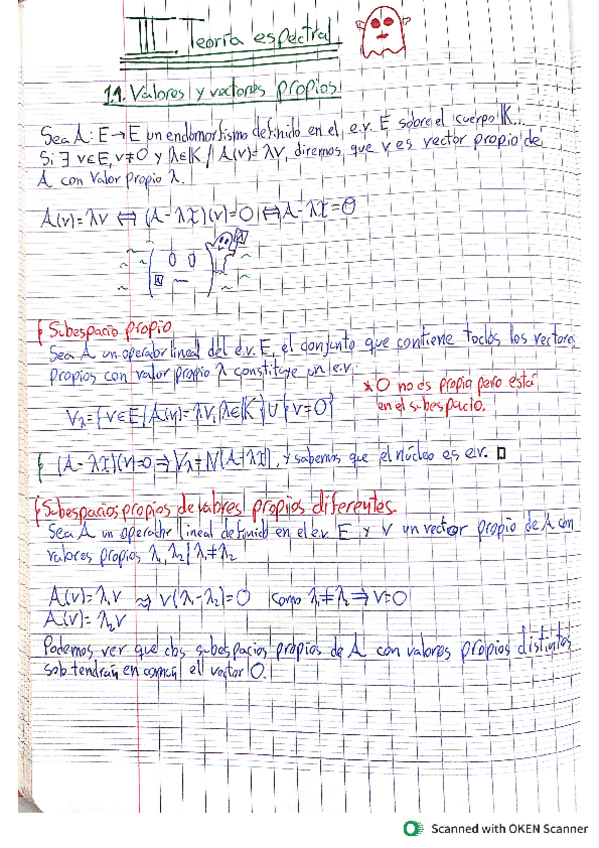 III. Teoría espectral
1.1. Valores y vectores propios
Sea A: E→E un endomorfismo definido en el e.v. E sobre el cuerpo K.
Si ∃ v∈E, v≠0 y λ∈K / A(v)=λv, diremos que v es vector propio de
A con valor propio λ.
A(v)=λv ⇔ (A-λI)(v)=0 ⇔ A-λI=0
0 0
Subespacio propio
Sea A un operador lineal del e.v. E, el conjunto que contiene todos los vectores
propios con valor propio λ constituye un e.v.
* 0 no es propio pero está
en el subespacio.
Vλ={v∈E/A(v)=λv, λ∈K}∪{v=0}
(A-λI)(v)=0 ⇒ Vλ=N(A-λI), y sabemos que el núcleo es e.v. □
Subespacios propios de valores propios diferentes.
Sea A un operador lineal definido en el e.v. E y v un vector propio de A con
valores propios λ₁, λ₂ / λ₁≠λ₂
A(v)=λ₁v ⇝ v(λ₁-λ₂)=0 como λ₁≠λ₂ ⇒ v=0
A(v)=λ₂v
Podemos ver que dos subespacios propios de A con valores propios distintos
solo tendrán en común el vector 0.
Scanned with OKEN Scanner